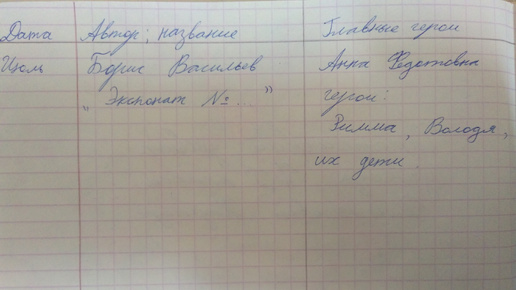 Дата Автор; название Главные герои
Июль Борис Васильев Анна Федотовна
„ Экспонат №... ” герои:
Римма, Володя,
их дети